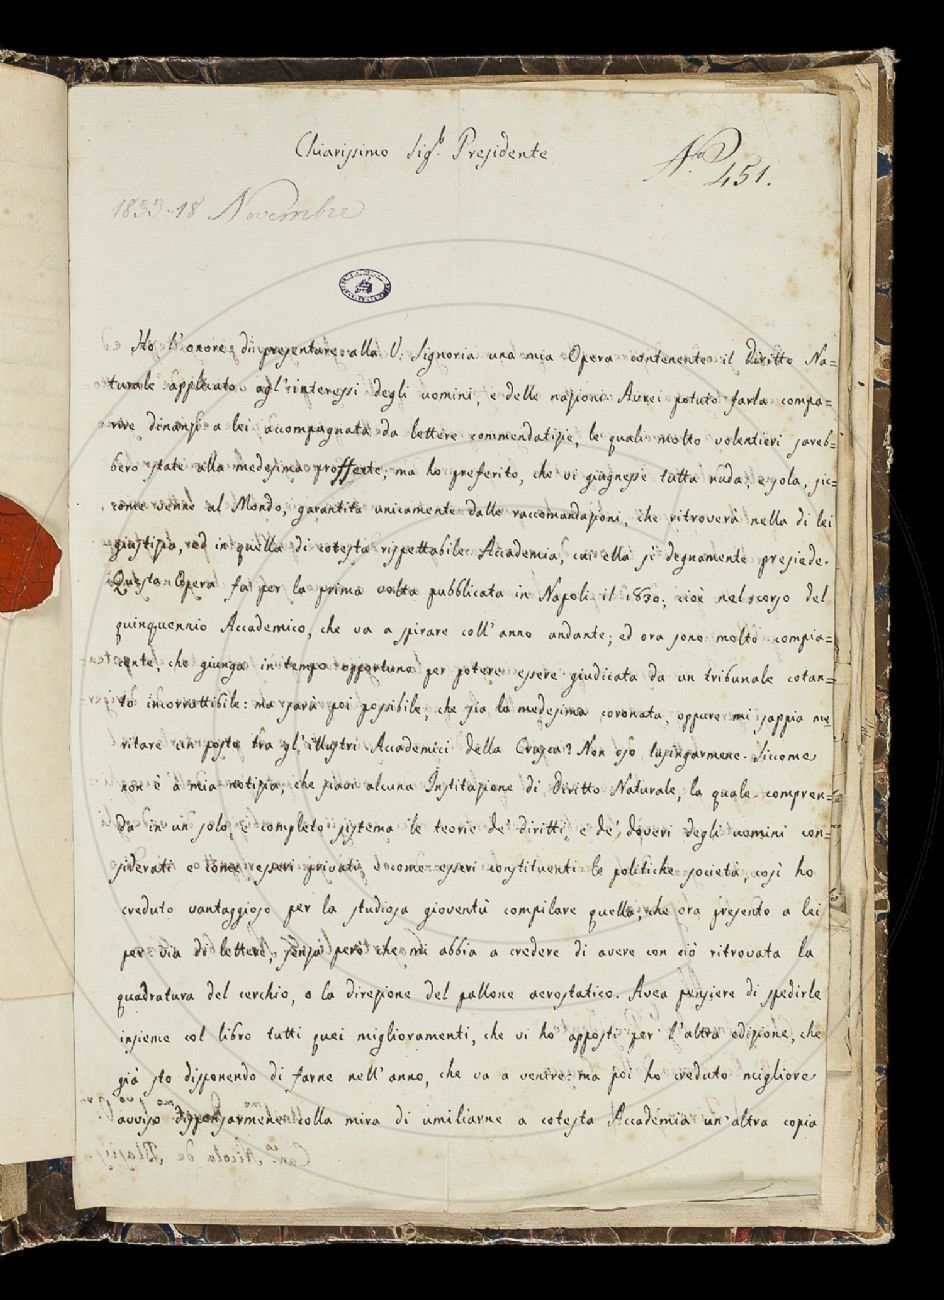 Chiarissimo Sig.r Presidente
N.o 451.
1833-18 Novembre
Ho l'onore di presentare alla V: Signoria una mia Opera contenente il Diritto Na=
turale applicato agl'interessi degli uomini, e delle nazioni. Avrei potuto farla compa=
rire dinanzi a lei accompagnata da lettere commendatizie, le quali molto volentieri sareb=
bero state alla medesima profferte; ma ho preferito, che vi giugnesse tutta nuda, e sola, sic=
come venne al Mondo, garantita unicamente dalle raccomandazioni, che ritroverà nella di lei
giustizia, ed in quella di cotesta rispettabile Accademia, cui ella sì degnamente presiede.
Questa Opera fu per la prima volta pubblicata in Napoli il 1830; cioè nel scorso del
quinquennio Accademico, che va a spirare coll'anno andante; ed ora sono molto compia=
cente, che giunga in tempo opportuno per potere essere giudicata da un tribunale cotan=
to incorruttibile: ma sarà poi possibile, che sia la medesima coronata, oppure mi sappia me
ritare un posto tra gl'illustri Accademici della Crusca? Non oso lusingarmene. Siccome
non è a mia notizia, che siavi alcuna Instituzione di Diritto Naturale, la quale compren=
da in un solo, e completo sistema le teorie de' diritti, e de' doveri degli uomini con=
siderati e come esseri privati e come esseri constituenti le politiche società, così ho
creduto vantaggioso per la studiosa gioventù compilare quella, che ora presento a lei
per via di lettere, senza però che mi abbia a credere di avere con ciò ritrovata la
quadratura del cerchio, o la direzione del pallone aerostatico. Avea pensiere di spedirle
insieme col libro tutti quei miglioramenti, che vi ho apposti per l'altra edizione, che
già sto disponendo di farne nell'anno, che va a venire: ma poi ho creduto migliore
avviso dispensarmene colla mira di umiliarne a cotesta Accademia un'altra copia
Can.co Nicola de Blasiis